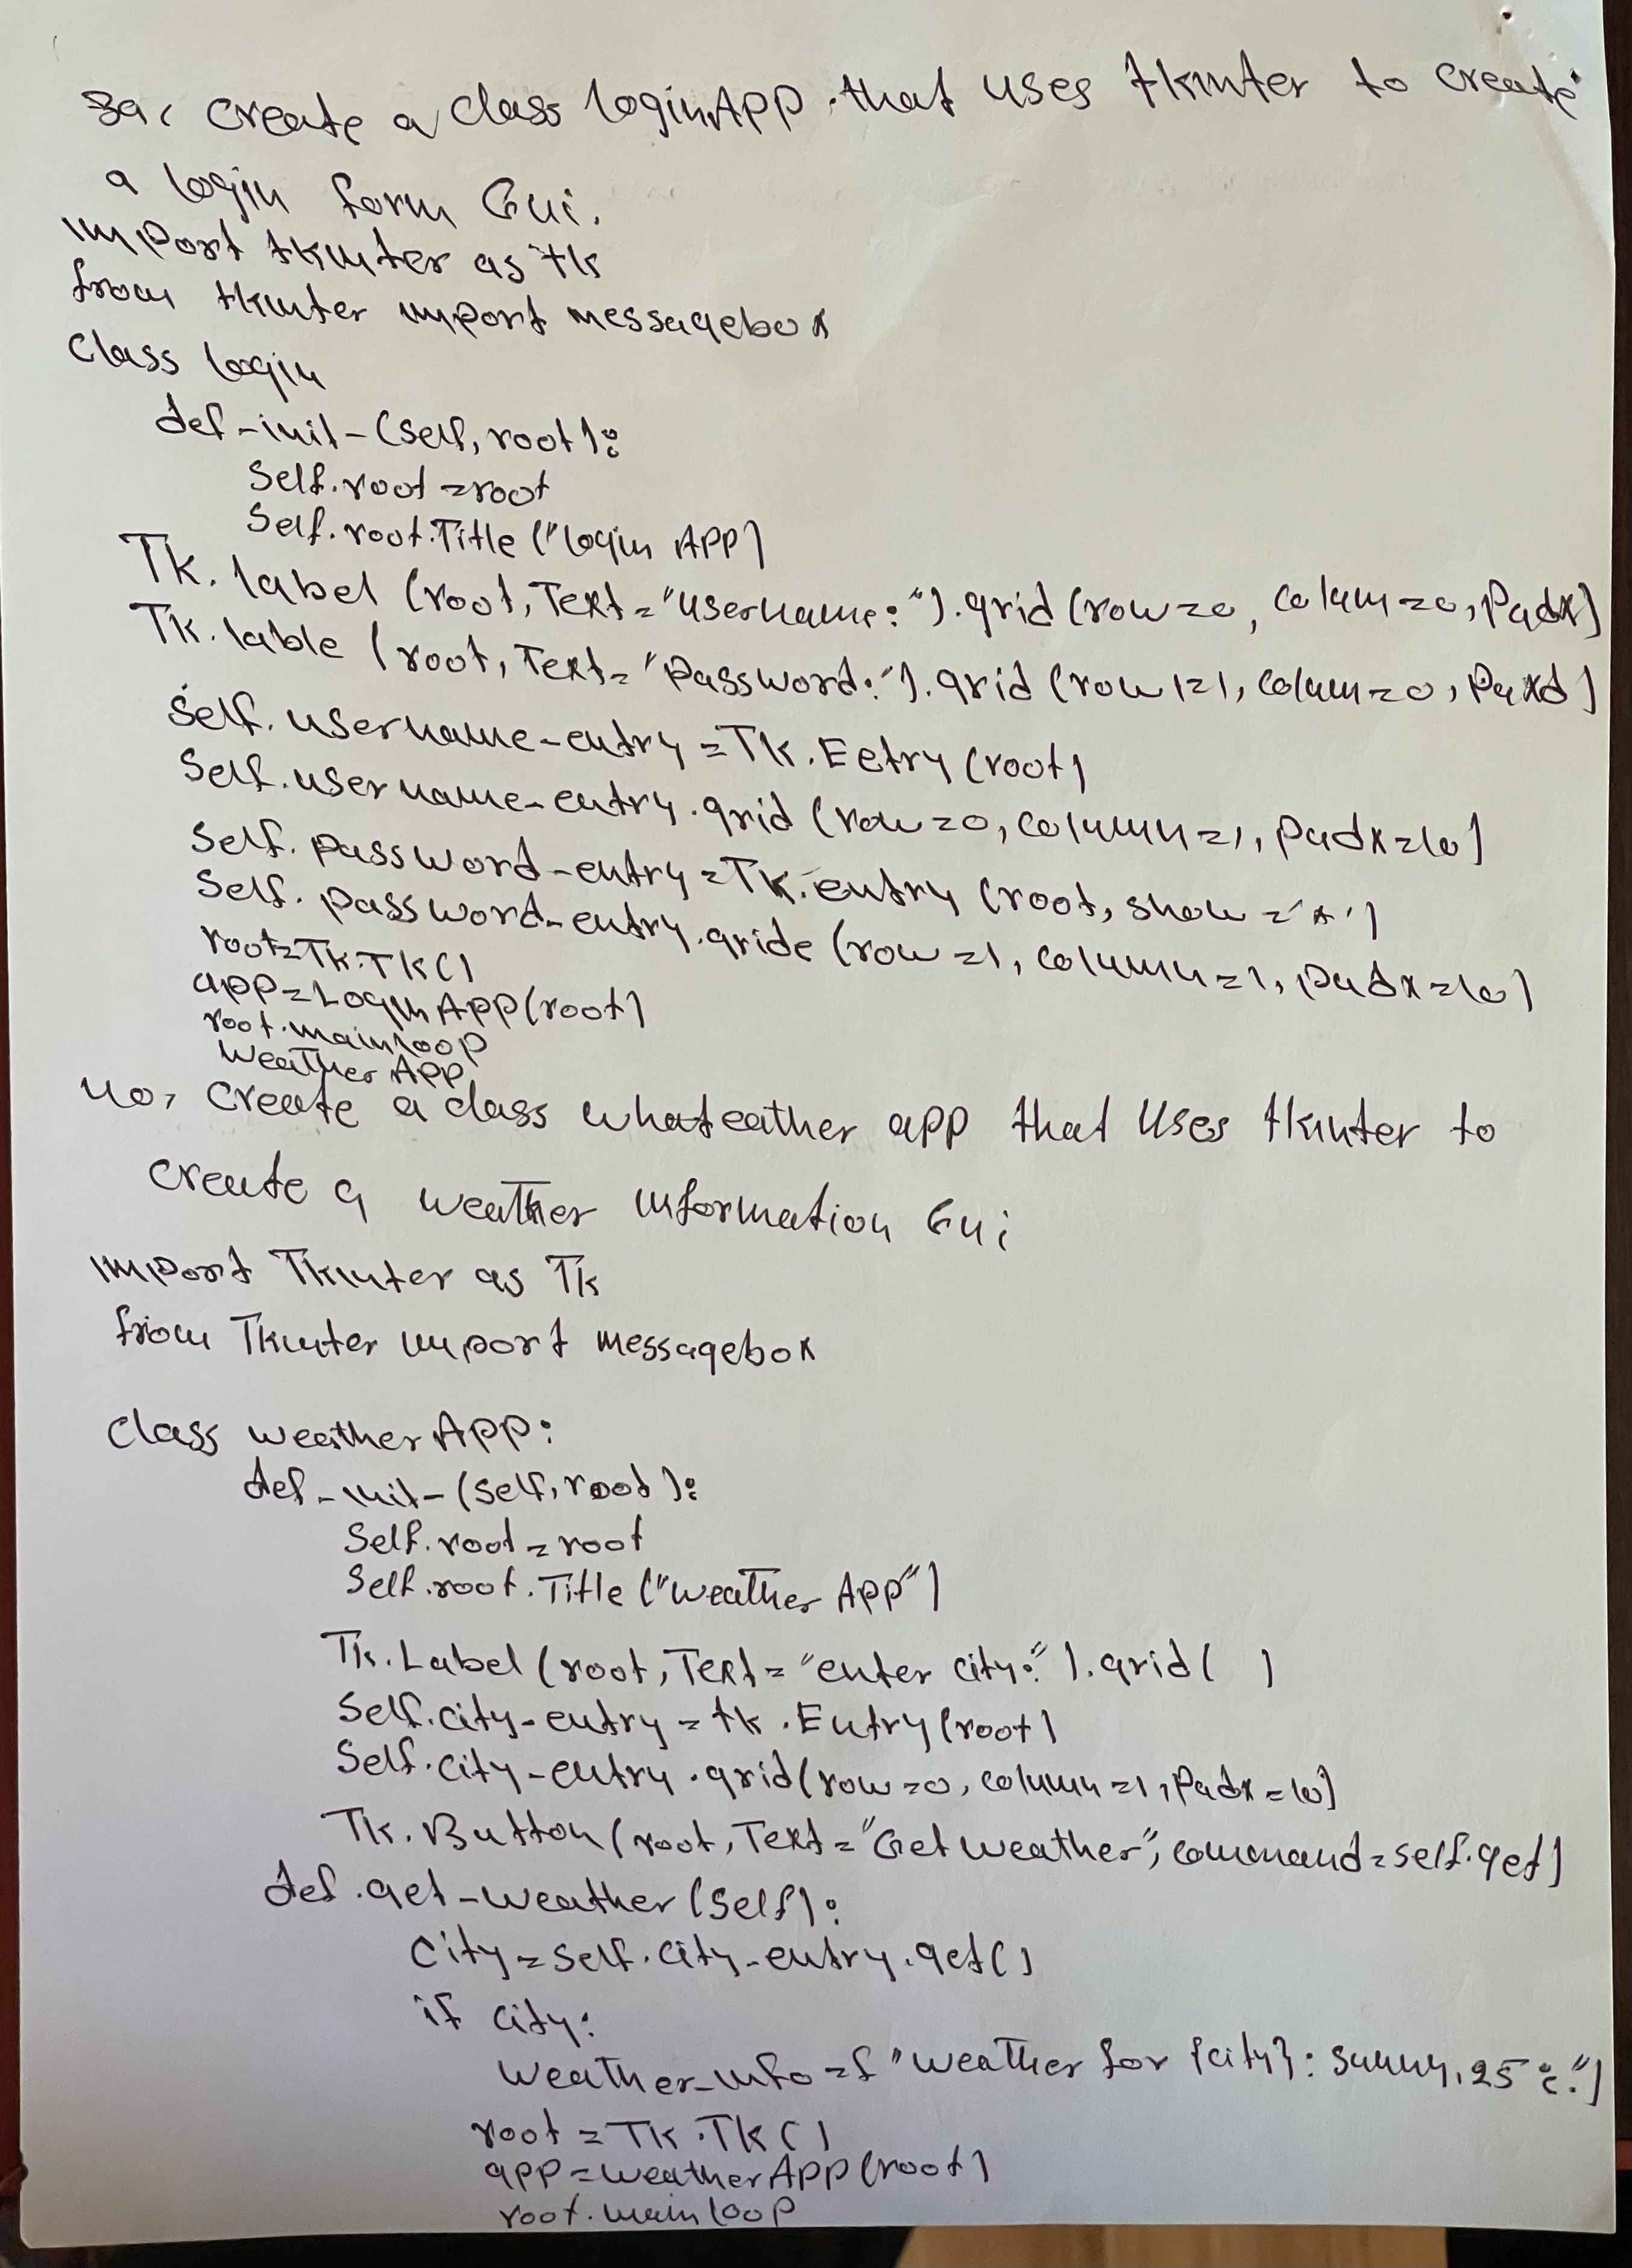 39, Create a class loginApp that uses tkinter to create
a login form Gui.
import tkinter as tk
from tkinter import messagebox
Class login
def-init-(self, root):
Self.root=root
Self.root.Title ("login APP)
Tk. label (root, Text="username:").grid (row=0, colum=0, Padx)
Tk. lable (root, Text="Password:").grid (row 1=1, colum=0, Paxd)
Self. username-entry=Tk.Eetry (root)
Self.username-entry.grid (row=0, column=1, padx=10)
Self. password-entry=Tk.entry (root, show='*')
Self. password-entry.gride (row=1, column=1, padx=10)
root=Tk.TK()
app=LoginApp(root)
root.mainloop
Weather App
40, Create a class whateather app that Uses tkinter to
create a weather information Gui
import Tkinter as Tk
from Tkinter import messagebox
Class weatherApp:
def-init-(self, root):
Self.root=root
Self.root.Title ("weather App")
Tk.Label (root, Text="enter city:").grid( )
Self.city-entry=tk.Entry(root)
Self.city-entry.grid(row=0, column=1, Padx=10)
Tk.Button(root, Text="Get weather", command=self.get)
def.get-weather(self):
City=self.city-entry.get()
if city:
weather-info=f "weather for {city}: Sunny, 25°c.")
root=TK.TK()
app=weatherApp(root)
root.mainloop